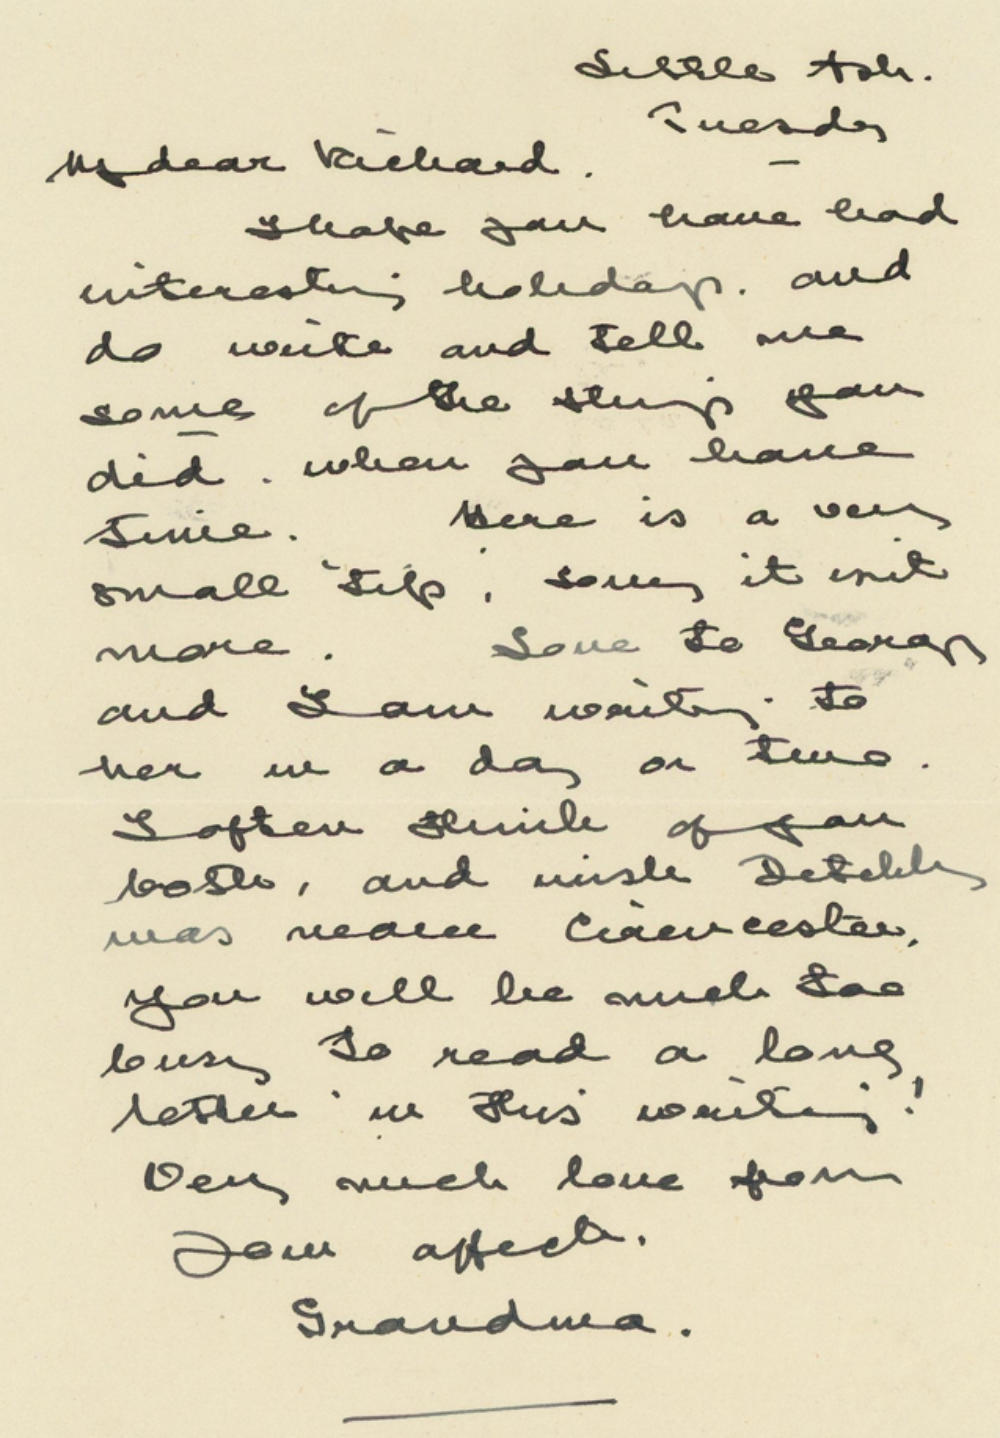 Little Ash.
Tuesday
My dear Richard.
I hope you have had
interesting holidays. and
do write and tell me
some of the things you
did. when you have
time. Here is a very
small 'tip', sorry it isnt
more. Love to Georgy
and I am writing to
her in a day or two.
I often think of you
both, and wish
was nearer Cirencester,
you will be much too
busy to read a long
letter in this writing!
Very much love from
your affect.
Grandma.